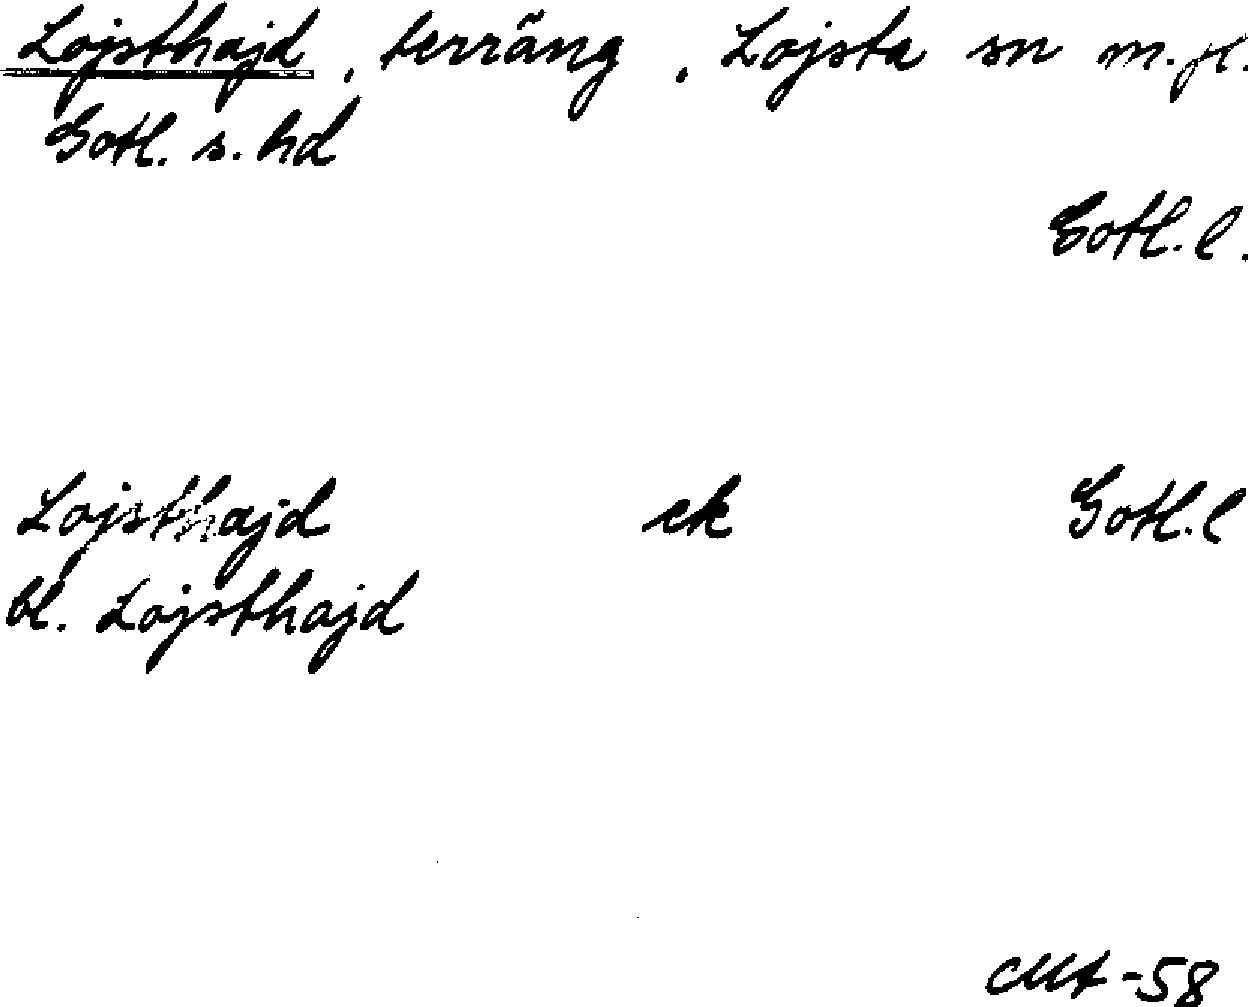 Lojsthajd, terräng, Lojsta sn m.fl.
Gotl. s. hd
Gotl. l.
Lojsthajd ek Gotl. l
bl. Lojsthajd
-58